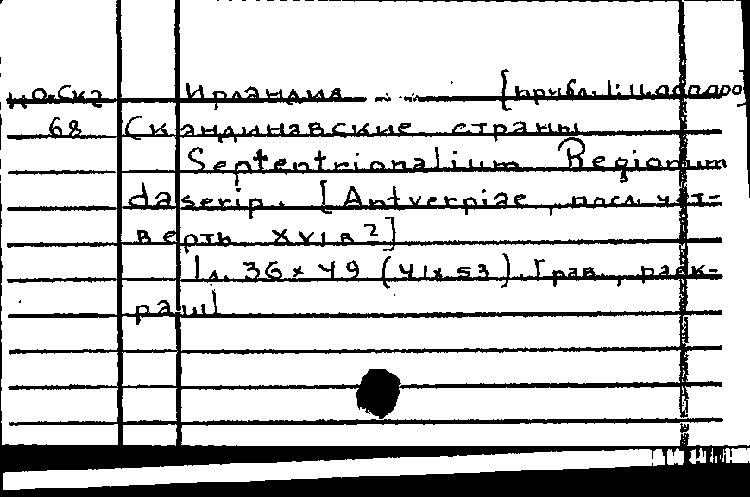 Ирландия [прибл. 1:11.000.000]
68 Скандинавские страны
Septentrionalium Regionum
daserip. [Antverpiae, посл. чет-
верть XVI в?]
1 л. 36×49 (41×53). Грав., раск-
раш